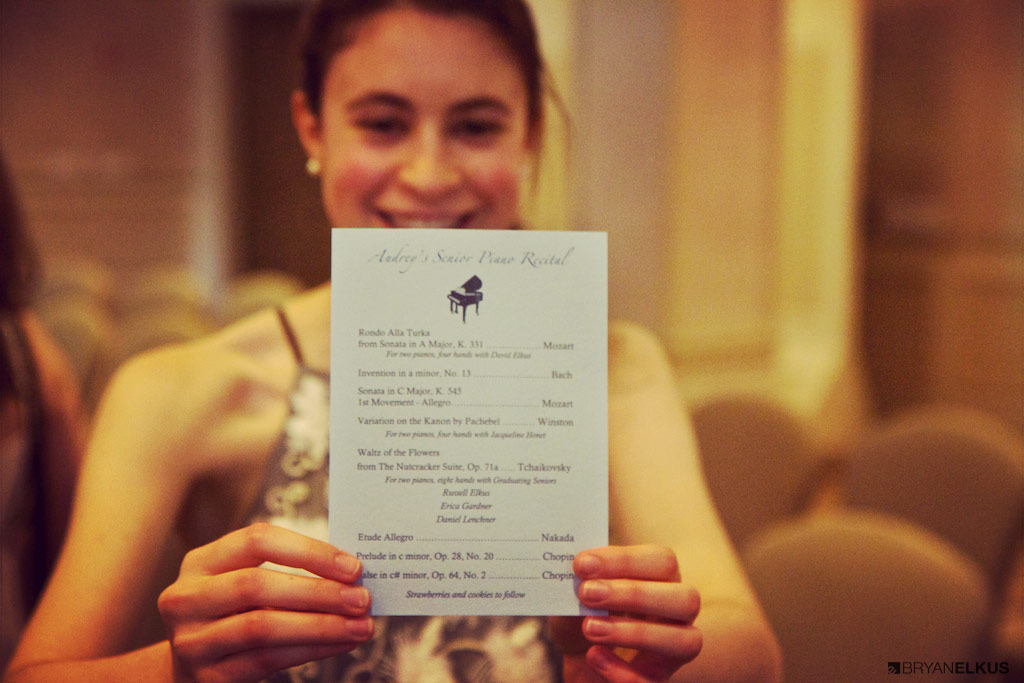 Audrey's Senior Piano Recital
Rondo Alla Turka
from Sonata in A Major, K. 331 .................... Mozart
For two pianos, four hands with David Elkus
Invention in a minor, No. 13 .......................... Bach
Sonata in C Major, K. 545
1st Movement - Allegro .............................. Mozart
Variation on the Kanon by Pachebel ........... Winston
For two pianos, four hands with Jacqueline Honet
Waltz of the Flowers
from The Nutcracker Suite, Op. 71a ..... Tchaikovsky
For two pianos, eight hands with Graduating Seniors
Russell Elkus
Erica Gardner
Daniel Lerchner
Etude Allegro .......................................... Nakada
Prelude in c minor, Op. 28, No. 20 ............... Chopin
alse in c# minor, Op. 64, No. 2 .................... Chopin
Strawberries and cookies to follow
BRYANELKUS